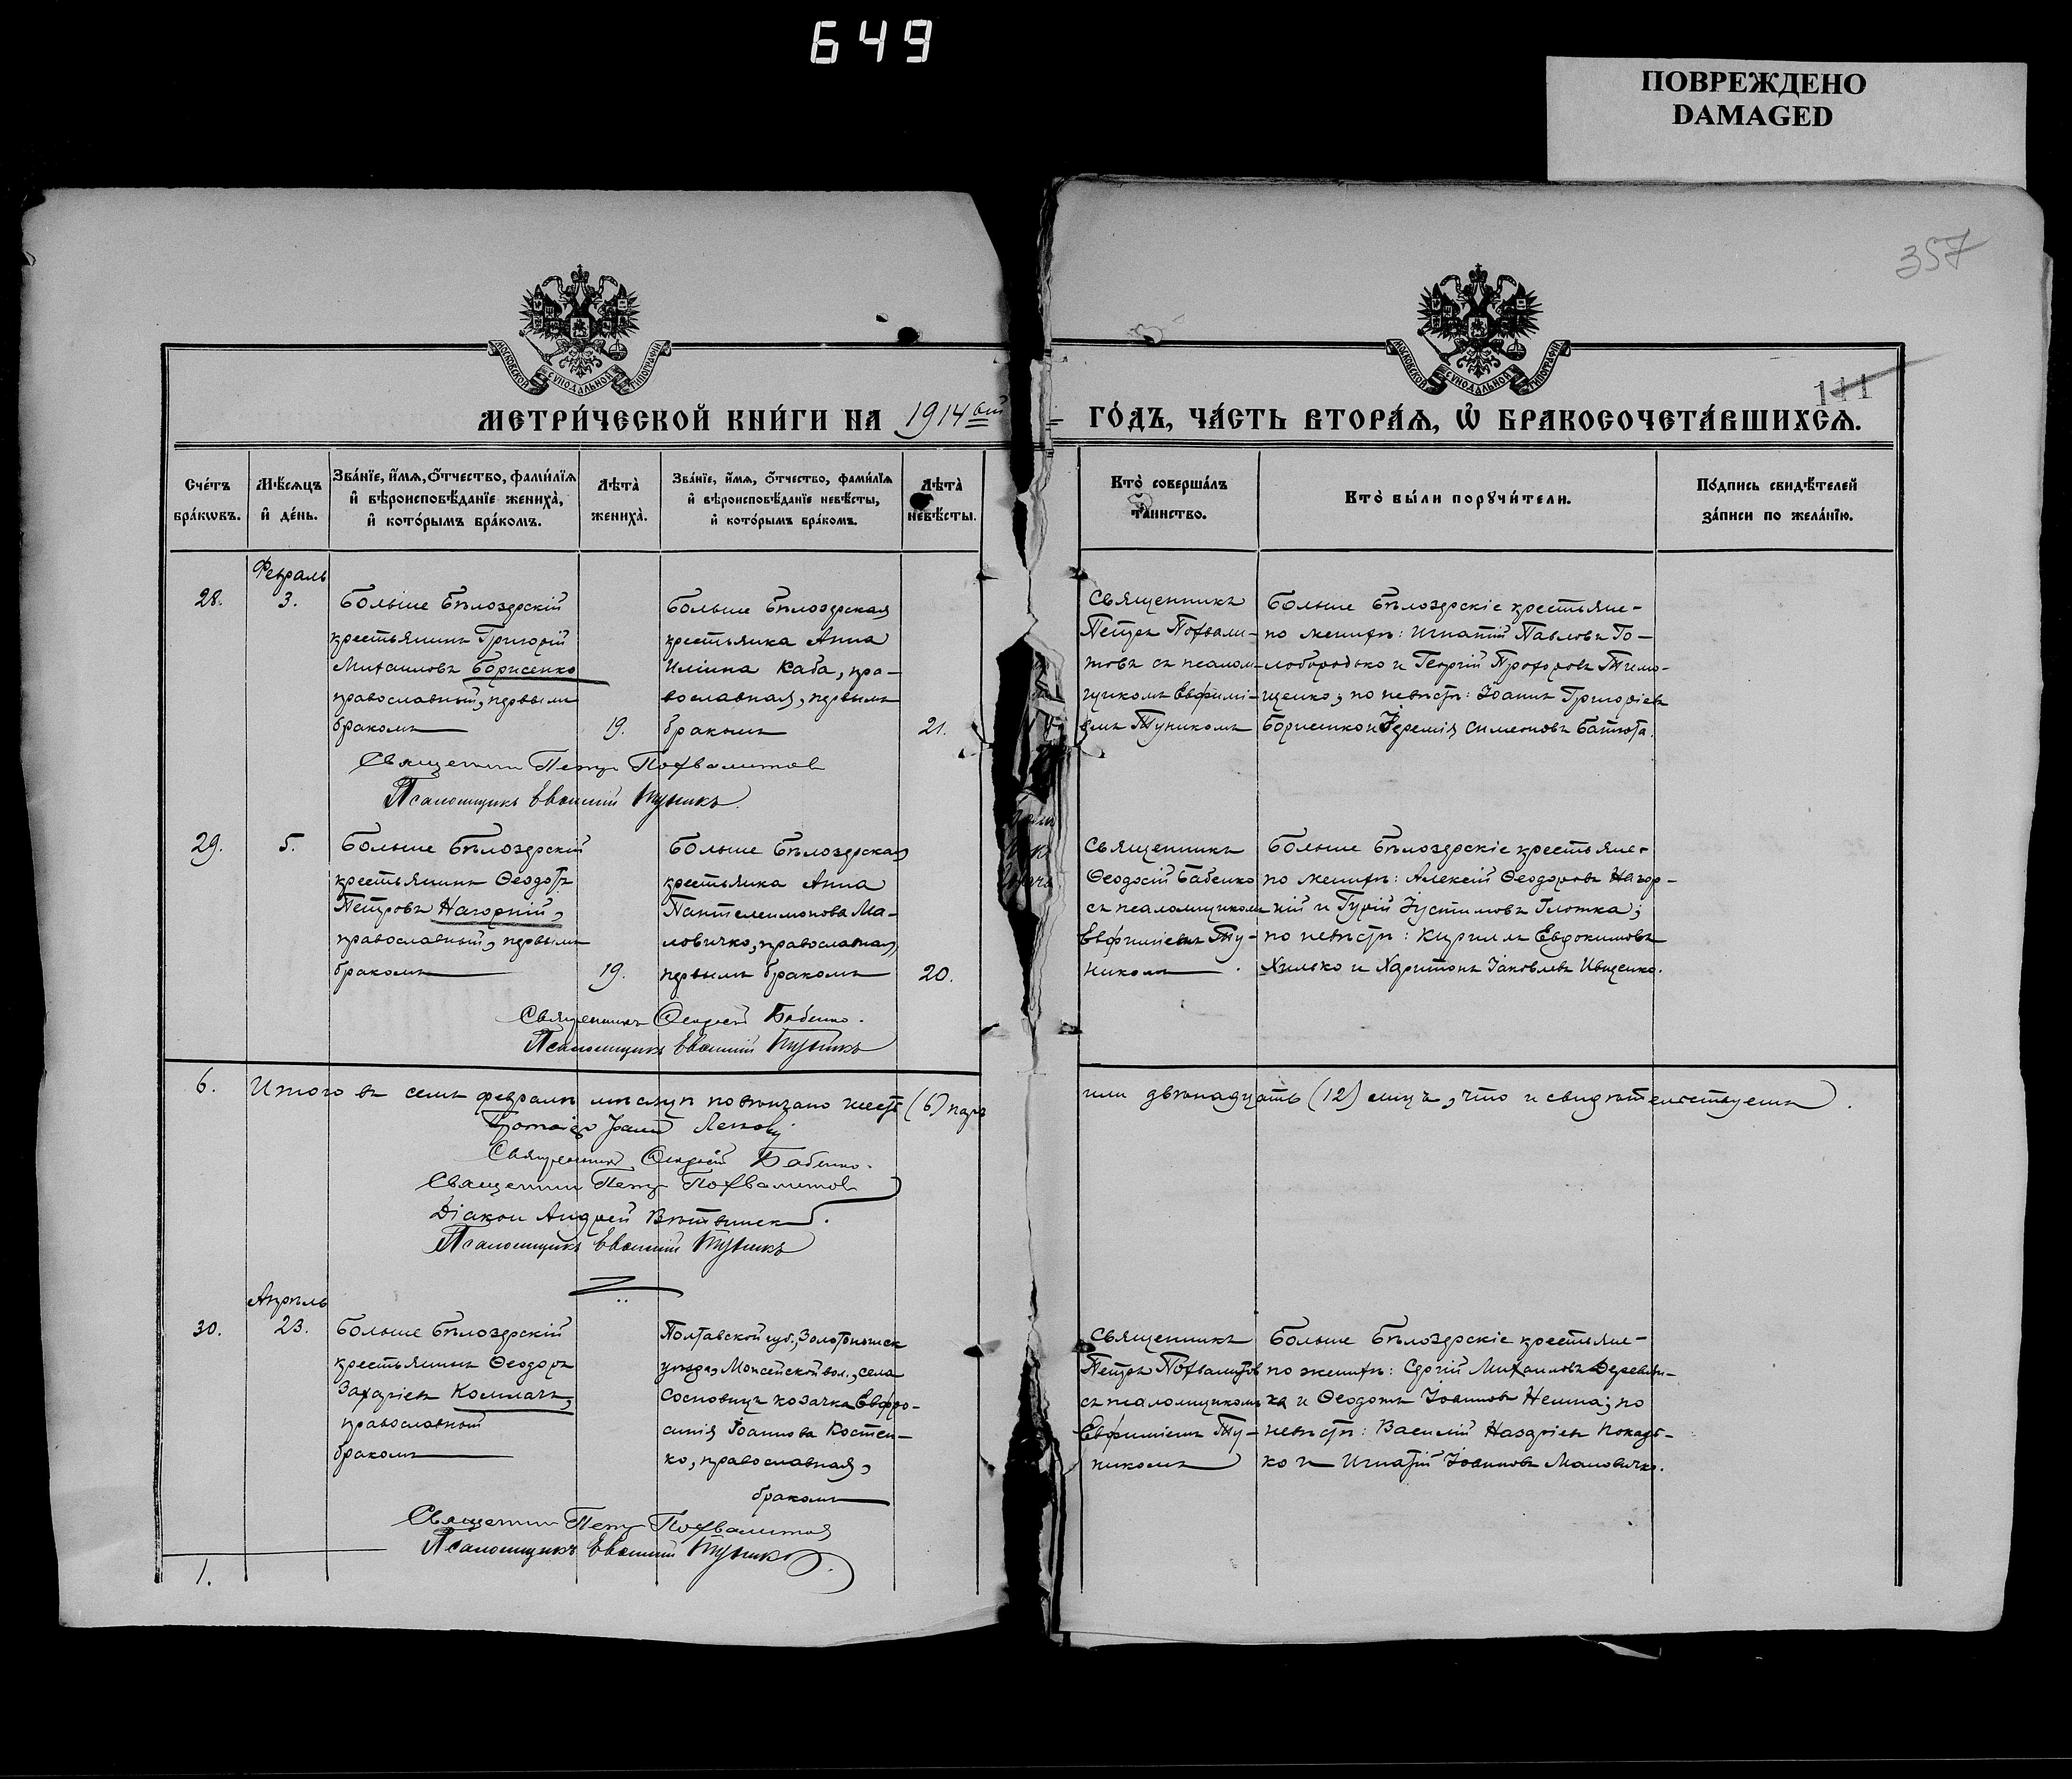 649
ПОВРЕЖДЕНО
DAMAGED
357
111
МОСКОВСКОЙ СУНОДАЛЬНОЙ ТИПОГРАФІИ
МОСКОВСКОЙ СУНОДАЛЬНОЙ ТИПОГРАФІИ
МЕТРИ́ЧЕСКОЙ КНИ́ГИ НА 1914 ый
ГО́ДЪ, ЧА́СТЬ ВТОРА́Ѧ, Ѡ҆ БРАКОСОЧЕТА́ВШИХСѦ.
Сче́тъ
бра́кѡвъ.
Мѣ́сѧцъ
и҆ де́нь.
Зва́нїе, и҆́мѧ, ѻ҆́тчество, фами́лїѧ
и҆ вѣроисповѣ́данїе жениха̀,
и҆ кото́рымъ бра́комъ.
Лѣта̀
жениха̀.
Зва́нїе, и҆́мѧ, ѻ҆́тчество, фами́лїѧ
и҆ вѣроисповѣ́данїе невѣ́сты,
и҆ кото́рымъ бра́комъ.
Лѣта̀
невѣ́сты.
Кто̀ соверша́лъ
та́инство.
Кто̀ бы́ли порꙋчи́тели.
По́дпись свидѣ́телей
за́писи по жела́нїю.
Февраль
28.
3.
Больше Бѣлозерскій
крестьянинъ Григорій
Михаиловъ Борисенко
православный, первымъ
бракомъ
19.
Больше Бѣлозерская
крестьянка Анна
Иліина Каба, пра-
вославная, первымъ
бракомъ
21.
Священникъ
Петръ Похвали-
товъ съ псалом-
щикомъ Евфимі-
емъ Туникомъ
Больше Бѣлозерскіе крестьяне-
по женихѣ: Игнатій Павловъ Го-
лобородько и Георгій Прохоровъ Тимо-
щенко; по невѣстѣ: Іоаннъ Григоріевъ
Борисенко и Іеремія Симеоновъ Батюта.
Священникъ Петръ Похвалитовъ
Псаломщикъ Евфимій Туникъ
29.
5.
Больше Бѣлозерскій
крестьянинъ Ѳеодотъ
Петровъ Нагорній,
православный, первымъ
бракомъ
19.
Больше Бѣлозерская
крестьянка Анна
Пантелеимонова Ма-
ловичко, православная,
первымъ бракомъ
20.
Священникъ
Ѳеодосій Бабенко
съ псаломщикомъ
Евфиміемъ Ту-
никомъ
Больше Бѣлозерскіе крестьяне-
по женихѣ: Алексій Ѳеодоровъ Нагор-
ній и Гурій Іустиновъ Глотка;
по невѣстѣ: Кириллъ Евдокимовъ
Хилько и Харитонъ Іаковлевъ Иващенко.
Священникъ Ѳеодосій Бабенко.
Псаломщикъ Евфимій Туникъ
6.
Итого въ семъ февралѣ мѣсяцѣ повѣнчано шесть (6) паръ
или двѣнадцать (12) лицъ, что и свидѣтельствуемъ.
Священникъ Ѳеодосій Бабенко.
Священникъ Петръ Похвалитовъ
Діаконъ Андрей
Псаломщикъ Евфимій Туникъ
Апрѣль
30.
23.
Больше Бѣлозерскій
крестьянинъ Ѳеодоръ
Захаріевъ Колмачъ,
православный
бракомъ
Полтавской губ., Золотоношск
уѣзда, Моисейской вол., села
Сосновицъ козачка Евфро-
синія Іоаннова Костен-
ко, православная,
бракомъ
Священникъ
Петръ Похвалитовъ
съ псаломщикомъ
Евфиміемъ Ту-
никомъ
Больше Бѣлозерскіе крестьяне-
по женихѣ: Сергій Михаиловъ Деревян-
ка и Ѳеодотъ Іоанновъ Немна; по
невѣстѣ: Василій Назаріевъ Покать-
ко и Игнатій Іоанновъ Маловичко.
Священникъ Петръ Похвалитовъ
Псаломщикъ Евфимій Туникъ
1.